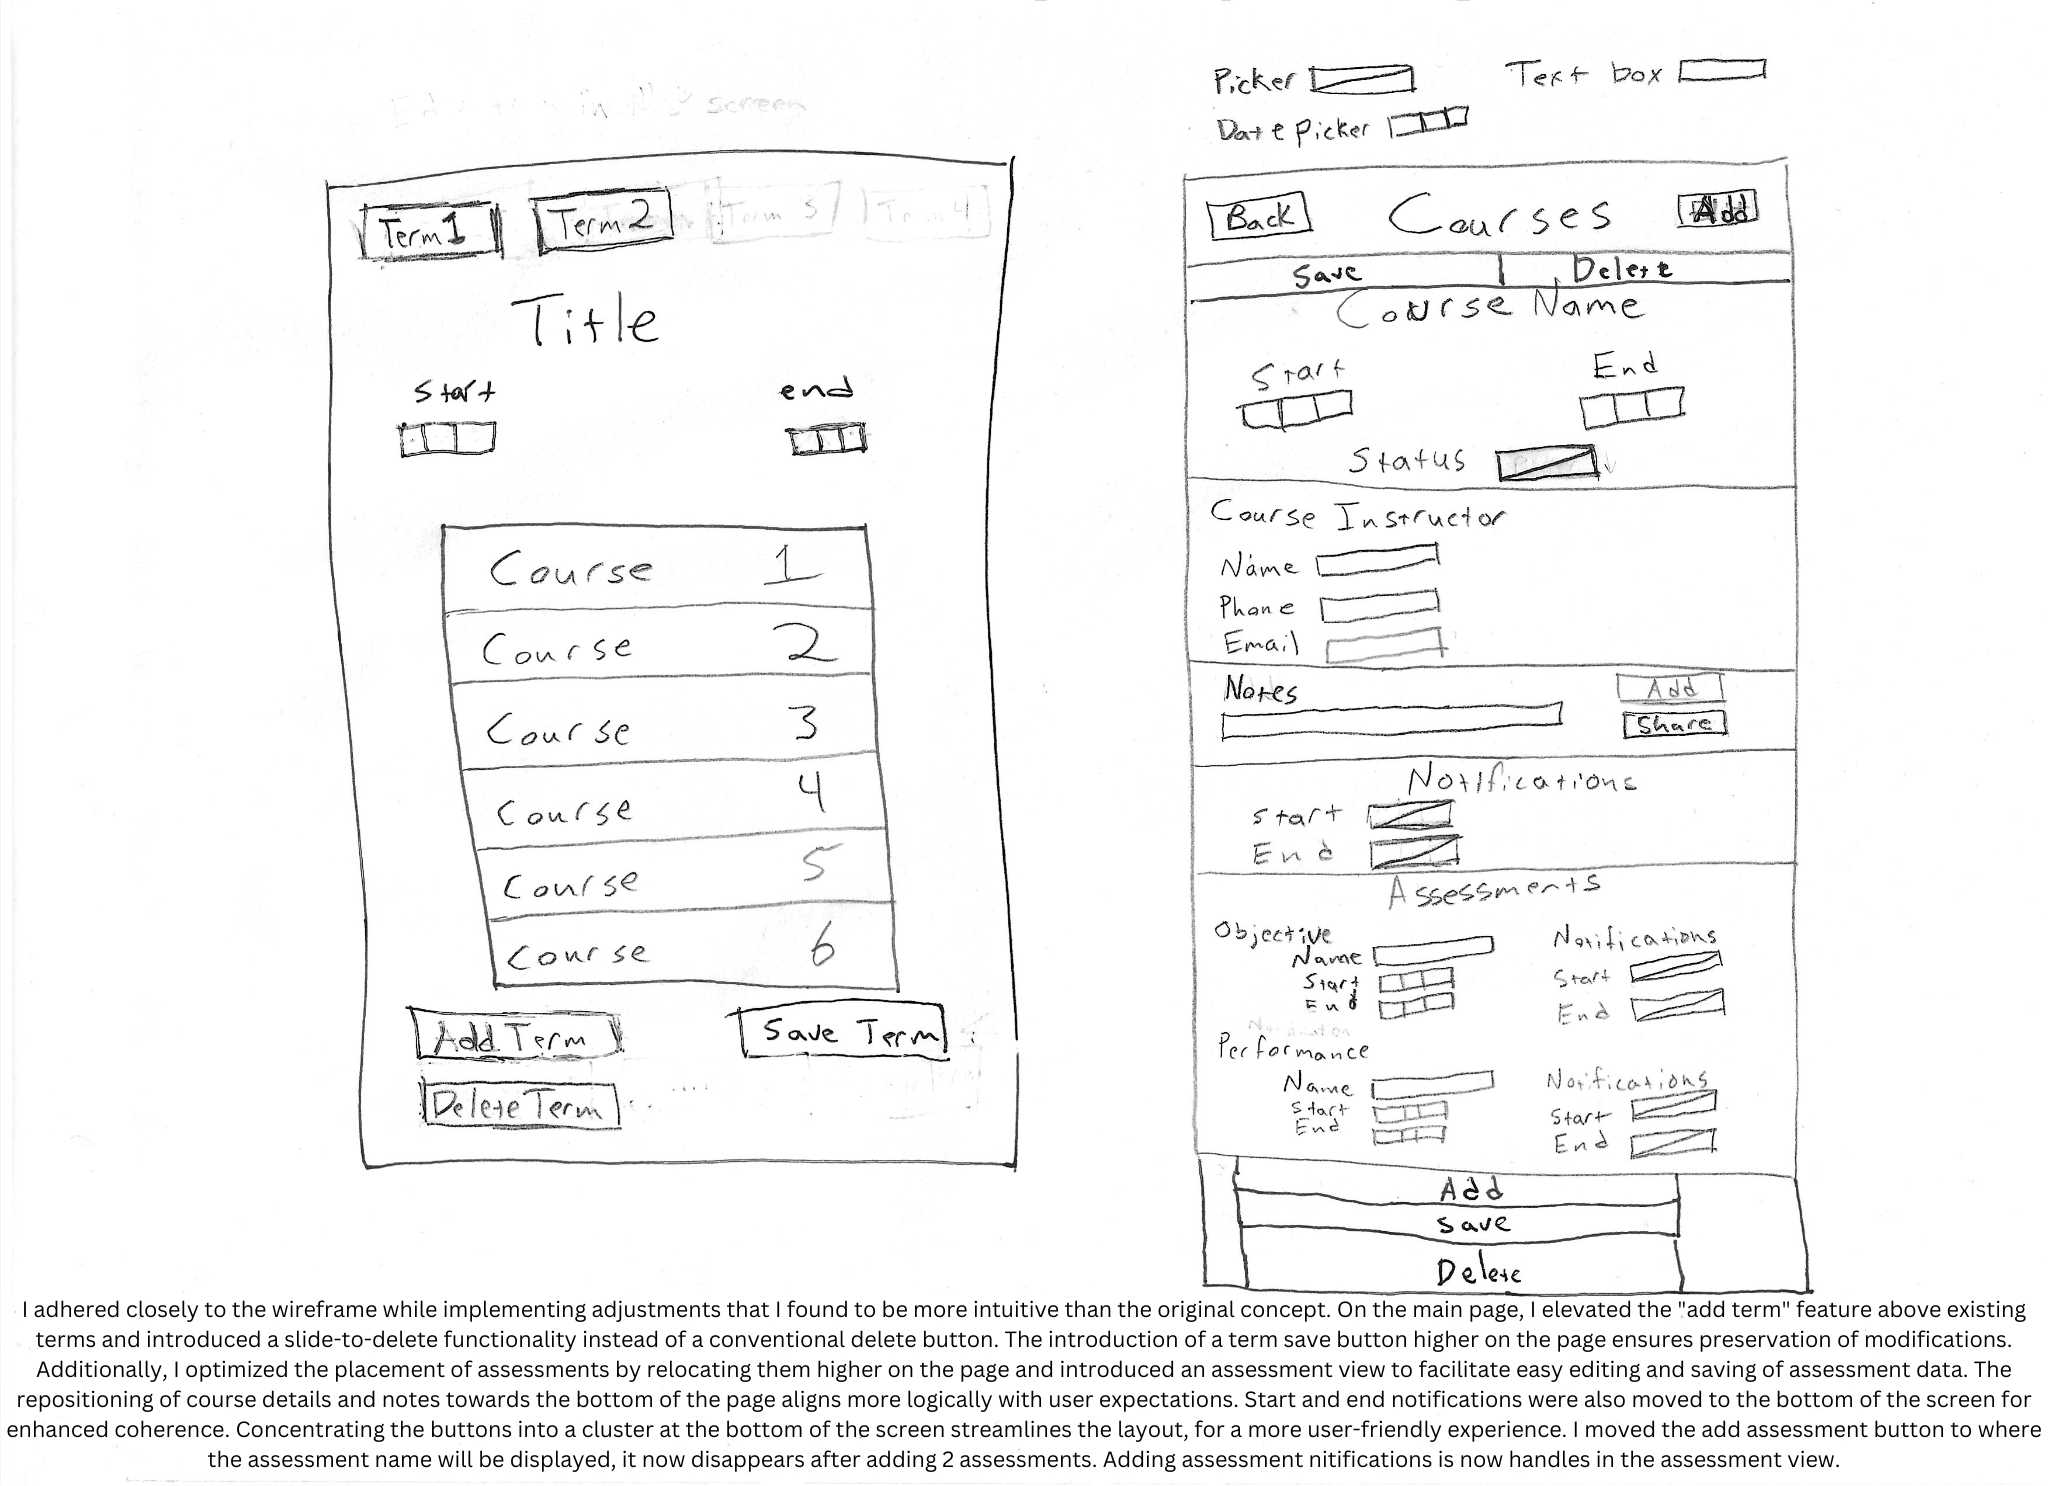 screen
Picker
Text box
Date Picker
Term 1
Term 2
Term 3
Term 4
Title
Start
end
Course 1
Course 2
Course 3
Course 4
Course 5
Course 6
Add Term
Save Term
Delete Term
Back
Courses
Add
Save
Delete
Course Name
Start
End
Status
Course Instructor
Name
Phone
Email
Notes
Add
Share
Notifications
Start
End
Assessments
Objective
Name
Start
End
Notifications
Start
End
Performance
Name
Start
End
Notifications
Start
End
Add
Save
Delete
I adhered closely to the wireframe while implementing adjustments that I found to be more intuitive than the original concept. On the main page, I elevated the "add term" feature above existing
terms and introduced a slide-to-delete functionality instead of a conventional delete button. The introduction of a term save button higher on the page ensures preservation of modifications.
Additionally, I optimized the placement of assessments by relocating them higher on the page and introduced an assessment view to facilitate easy editing and saving of assessment data. The
repositioning of course details and notes towards the bottom of the page aligns more logically with user expectations. Start and end notifications were also moved to the bottom of the screen for
enhanced coherence. Concentrating the buttons into a cluster at the bottom of the screen streamlines the layout, for a more user-friendly experience. I moved the add assessment button to where
the assessment name will be displayed, it now disappears after adding 2 assessments. Adding assessment nitifications is now handles in the assessment view.